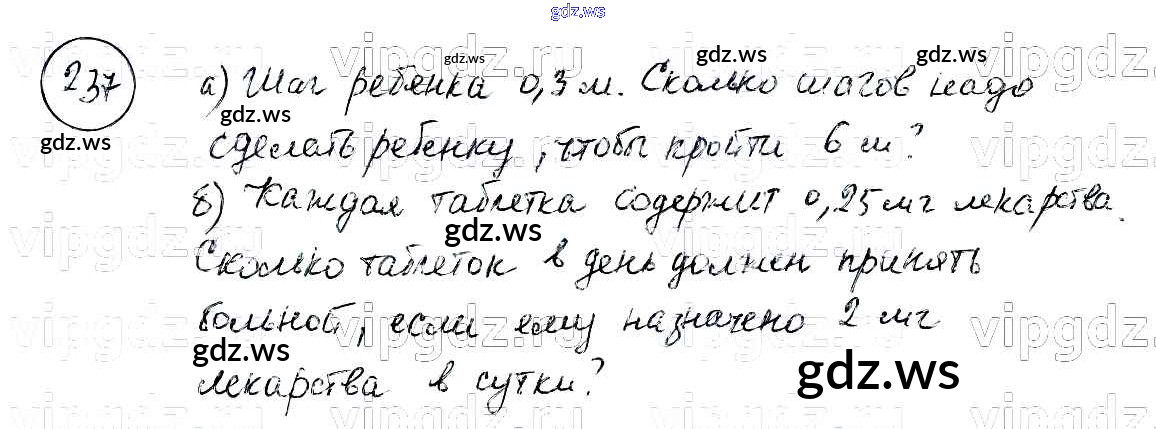 gdz.ws
237 а) Шаг ребёнка 0,3 м. Сколько шагов надо
сделать ребенку, чтобы пройти 6 м?
б) Каждая таблетка содержит 0,25 мг лекарства.
Сколько таблеток в день должен принять
больной, если ему назначено 2 мг
лекарства в сутки?
gdz.ws
gdz.ws
gdz.ws
gdz.ws
gdz.ws
gdz.ws
gdz.ws
gdz.ws
vipgdz vipgdz vipgdz vipgdz
vipgdz vipgdz vipgdz vipgdz
vipgdz vipgdz vipgdz vipgdz
vipgdz vipgdz vipgdz vipgdz